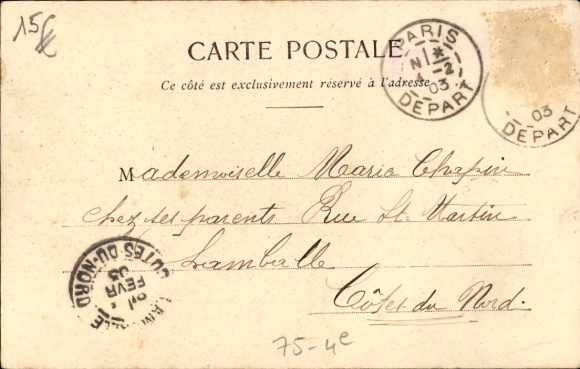 15€
CARTE POSTALE
Ce côté est exclusivement réservé à l'adresse
PARIS
N *
4 -2
03
DEPART
03
DEPART
Mademoiselle Maria Chapin
chez ses parents Rue St Martin
Lamballe
Côtes du Nord.
LAMBALLE
FEVR
03
COTES-DU-NORD
75-4e